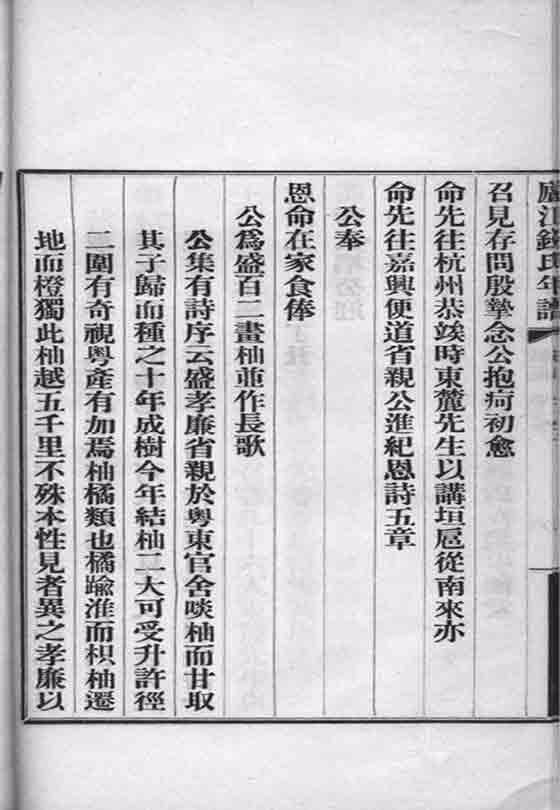 廬江錢氏年譜
召見存問殷摯念公抱疴初愈
命先往杭州恭竢時東麓先生以講垣扈從南來亦
命先往嘉興便道省親公進紀恩詩五章
公奉
恩命在家食俸
公爲盛百二畫柚並作長歌
公集有詩序云盛孝廉省親於粵東官舍啖柚而甘取
其子歸而種之十年成樹今年結柚二大可受升許徑
二圍有奇視粵產有加焉柚橘類也橘踰淮而枳柚遷
地而橙獨此柚越五千里不殊本性見者異之孝廉以